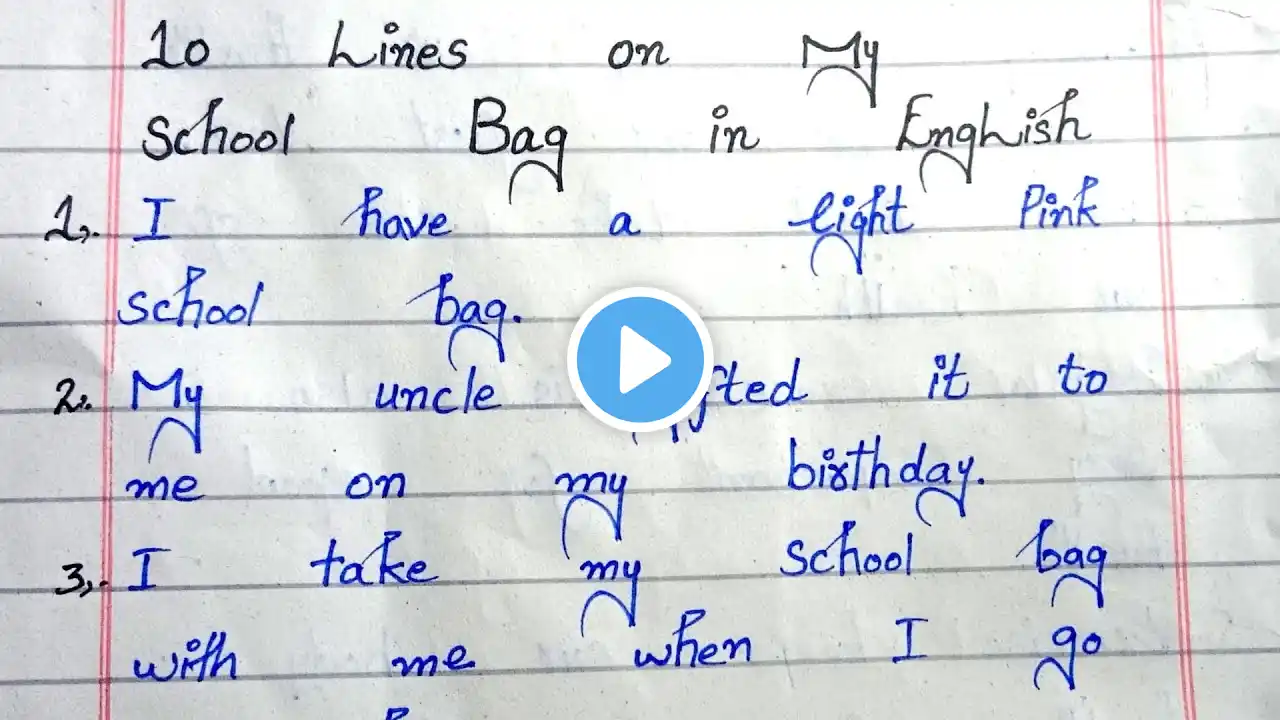 10 Lines on My
School Bag in English
1. I have a light Pink
school bag.
2. My uncle it to
me on my birthday.
3. I take my school bag
with me when I go